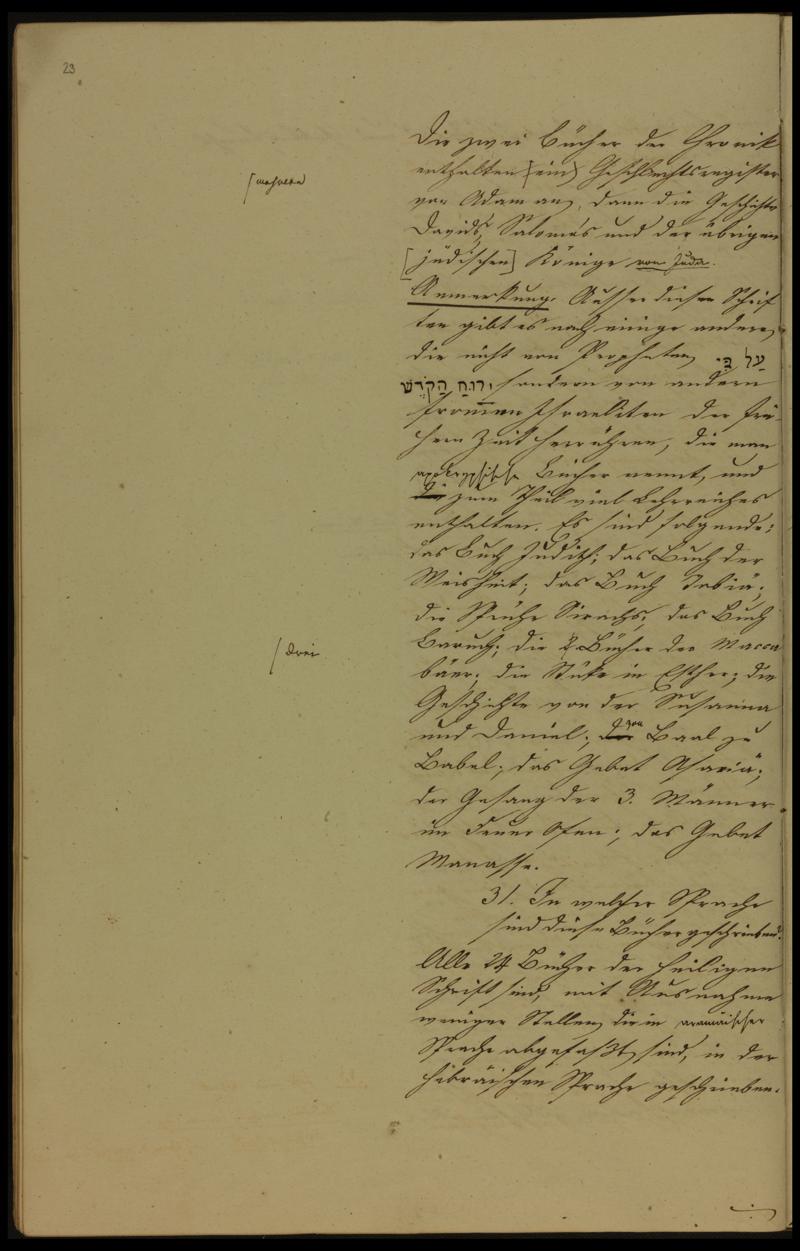 23
Die zwei Bücher der Chronik
enthalten [ein] Geschlechtsregister
mehrere
von Adam an, dann die Geschichte
Davids, Salomos und der übrigen
[jüdischen] Könige von Juda.
Anmerkung. Ausser diesen Schrif
ten gibt es noch einige andere,
die nicht von Propheten עַל פִּי
רוּחַ הַקֹּדֶשׁ, sondern von andern
frommen Israeliten der frü-
hern Zeit herrühren, die man
apokryphische Bücher nennt, und
die zum Theil viel Lehrreiches
enthalten. Es sind folgende:
das Buch Judith; das Buch der
Weisheit; das Buch Tobiä;
die Sprüche Sirachs; das Buch
Baruch; die 2 Bücher der Macca
drei
bäer; die Stüke in Esther; die
Geschichte von der Susanna
und Daniel; der von Baal zu
Babel; das Gebet Asariä;
der Gesang der 3. Männer
im Feuer Ofen; das Gebet
Manasse.
31. In welcher Sprache
sind diese Bücher geschrieben?
Alle 24 Bücher der heiligen
Schrift sind, mit Ausnahme
weniger Stellen, die in aramäischer
Sprache abgefaßt sind, in der
hebräischen Sprache geschrieben.